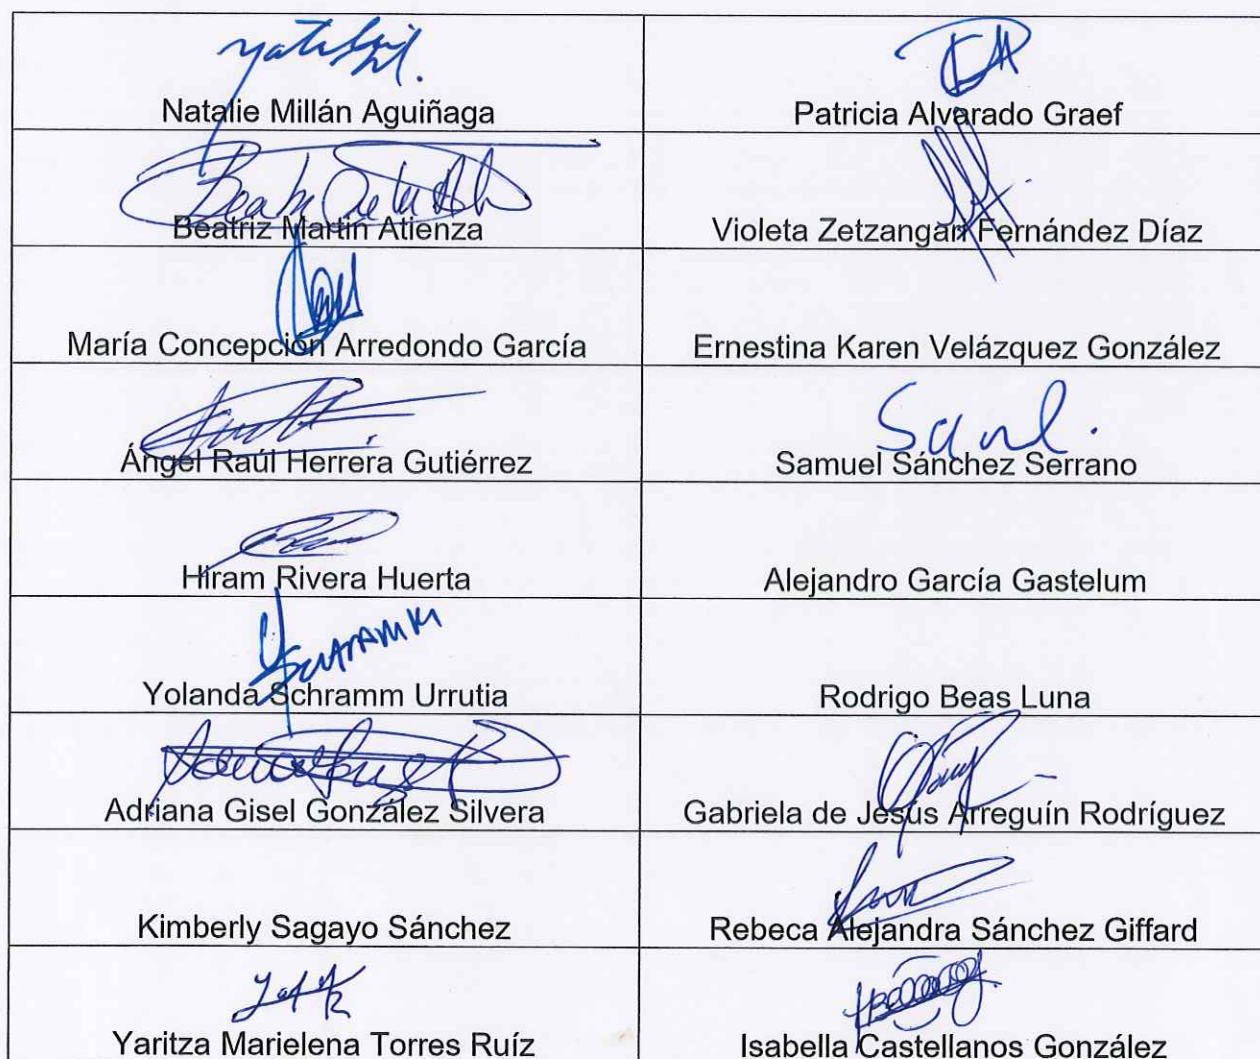 Natalie Millán Aguiñaga
Patricia Alvarado Graef
Beatriz Martin Atienza
Violeta Zetzangari Fernández Díaz
María Concepción Arredondo García
Ernestina Karen Velázquez González
Ángel Raúl Herrera Gutiérrez
Samuel Sánchez Serrano
Hiram Rivera Huerta
Alejandro García Gastelum
Yolanda Schramm Urrutia
Rodrigo Beas Luna
Adriana Gisel González Silvera
Gabriela de Jesús Arreguín Rodríguez
Kimberly Sagayo Sánchez
Rebeca Alejandra Sánchez Giffard
Yaritza Marielena Torres Ruíz
Isabella Castellanos González